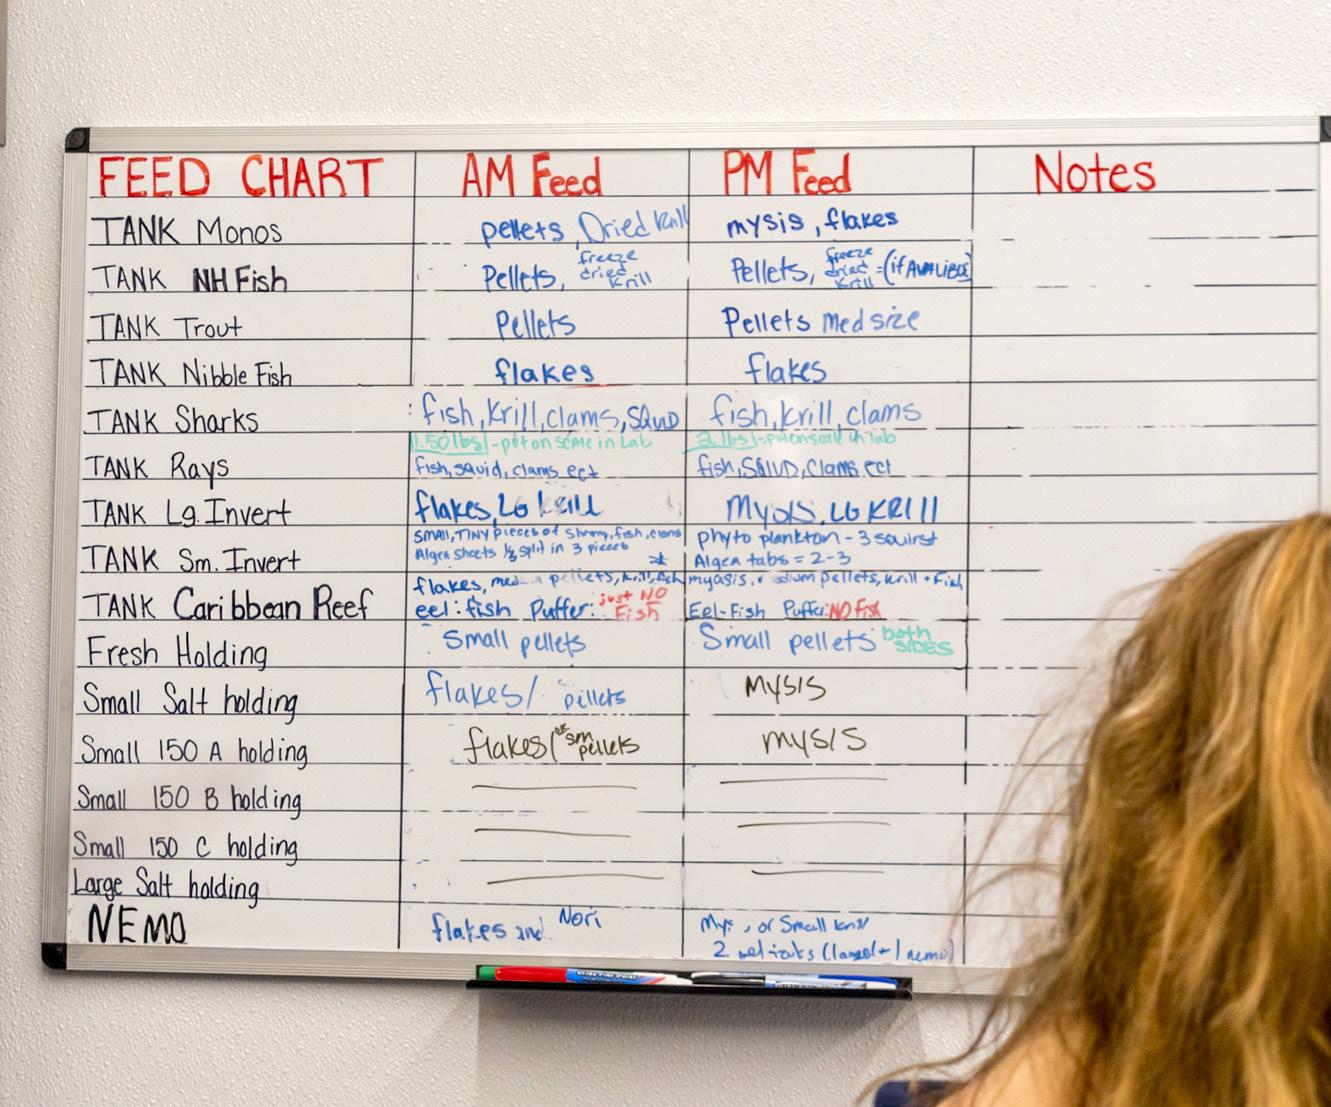 FEED CHART AM Feed PM Feed Notes
TANK Monos pellets, Dried krill mysis, flakes
TANK NH Fish Pellets, freeze dried Krill Pellets, freeze dried Krill =(if AVALIBLE)
TANK Trout Pellets Pellets Med size
TANK Nibble Fish flakes flakes
TANK Sharks : fish, Krill, clams, SQUID fish, krill, clams
1.50 lbs - put on scale in Lab 2 lbs - put on scale in lab
TANK Rays fish, squid, clams ect fish, SQUID, clams ect
TANK Lg. Invert flakes, LG krill Mysis, LG KRILL
SMALL, TINY pieces of shrimp, fish, clams phyto plankton - 3 squirst
TANK Sm. Invert Algea sheets 1/3 split in 3 pieces * Algea tabs = 2-3
flakes, pellets, krill, fish myasis, pellets, krill + Fish
TANK Caribbean Reef eel: fish Puffer: just NO Fish Eel-Fish Puffer: NO Fish
Fresh Holding Small pellets Small pellets both SIDES
Small Salt holding flakes/ pellets Mysis
Small 150 A holding flakes/ sm pellets mysis
Small 150 B holding
Small 150 C holding
Large Salt holding
NEMO flakes and Nori or Small krill
2